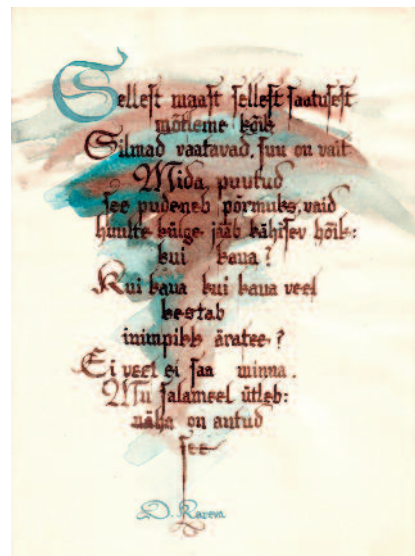 Sellest maast sellest saatusest
mõtleme kõik
Silmad vaatavad, suu on vait.
Mida, puutud
see pudeneb põrmuks, vaid
huulte külge jääb kähisev hõik:
kui kaua?
Kui kaua kui kaua veel
kestab
inimpikk äratee?
Ei veel ei saa minna.
Mu salameel ütleb:
näha on antud
see
D. Kareva